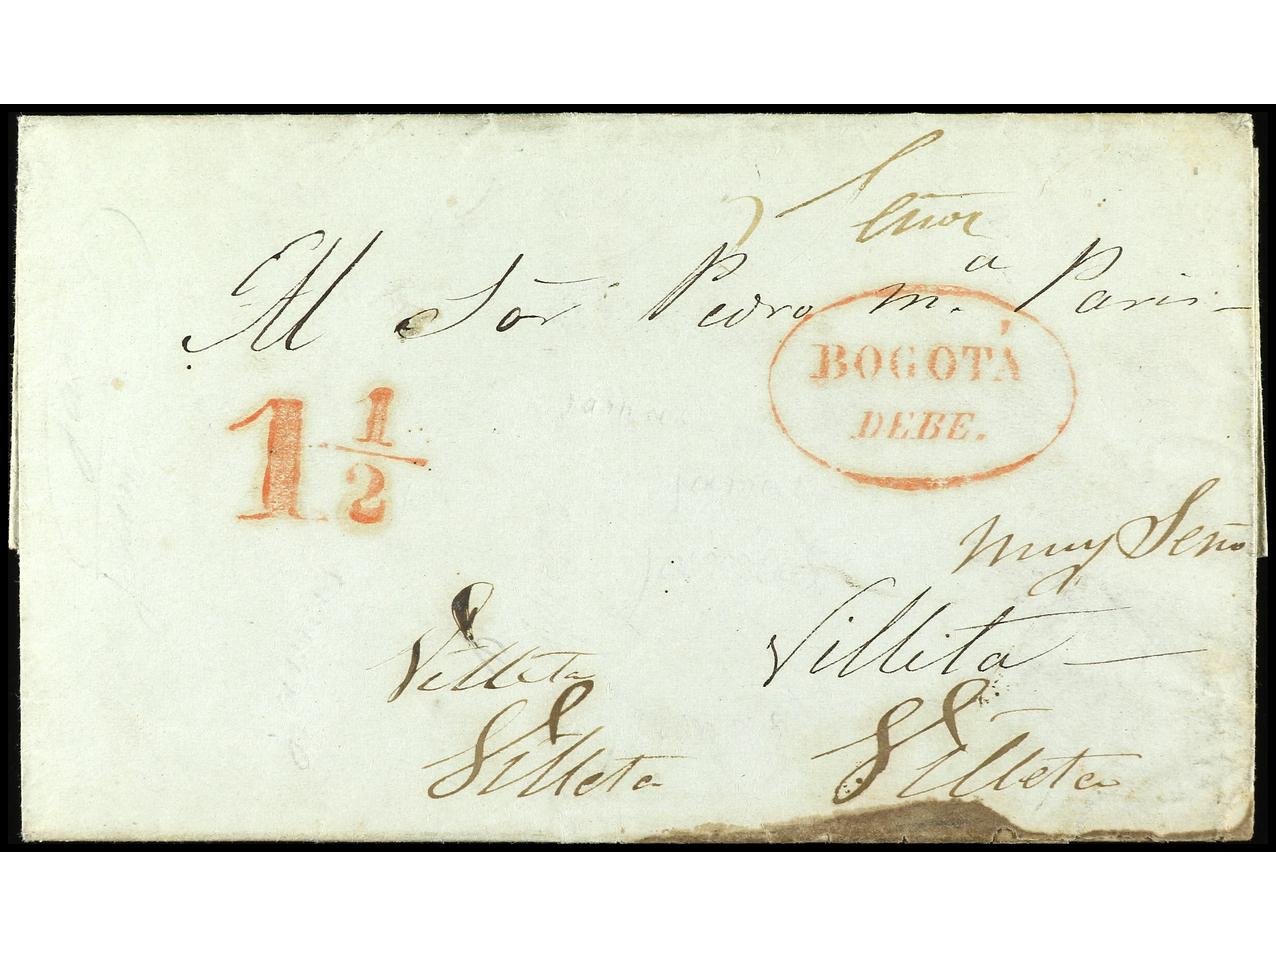 Señor
Al Sor Pedro ma. Paris
BOGOTÁ
DEBE.
1 1/2
muy Seño
Villeta
Villeta
Villeta
Villeta